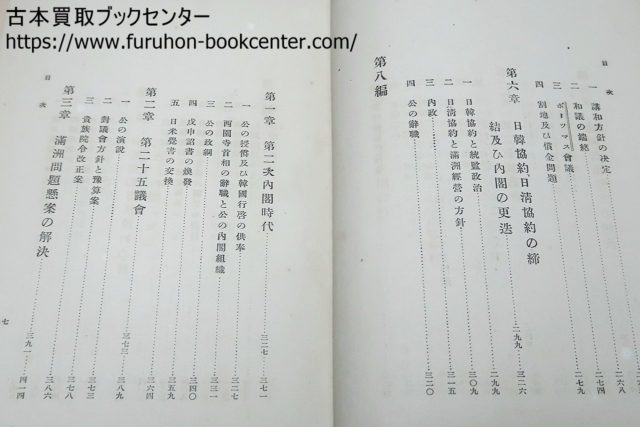 古本買取ブックセンター
https://www.furuhon-bookcenter.com/
目次
一 講和方針の決定……二六八
二 和議の繼続……二七四
三 ポーツマス會議……二七九
四 割地及び償金問題
第六章 日韓協約日清協約の締
結及び内閣の更迭……二九九 三二六
一 日韓協約と統監政治……二九九
二 日清協約と滿洲經營の方針……三〇九
三 内政……三一五
四 公の辭職……三二〇
第八編
目次
第一章 第二次内閣時代……三二七 三七一
一 公の授爵及び韓國行啓の供奉……三二七
二 西園寺首相の辭職と公の内閣組織……三三一
三 公の政綱……三四〇
四 戊申詔書の煥發……三五九
五 日米覺書の交換……三六四
第二章 第二十五議會……三七三 三八九
一 公の演說……三七三
二 對議會方針と豫算案……三七八
三 貴族院令改正案……三八六
第三章 滿洲問題懸案の解決……三九一 四一四
七